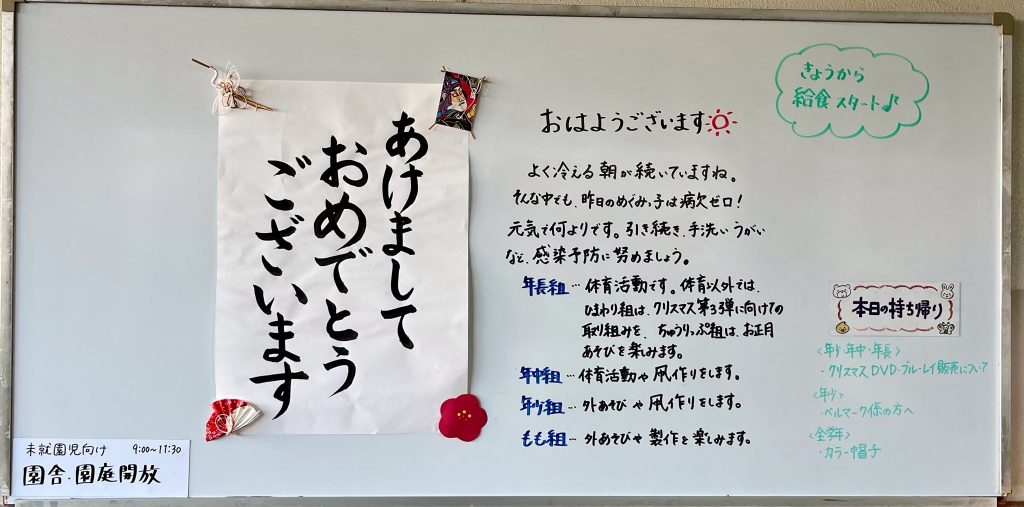 あけまして
おめでとう
ございます
きょうから
給食スタート♪
おはようございます
よく冷える朝が続いていますね。
そんな中でも、昨日のめぐみっ子は病欠ゼロ!
元気で何よりです。引き続き、手洗いうがい
など、感染予防に努めましょう。
年長組…体育活動です。体育以外では、
ひまわり組は、クリスマス第3弾に向けての
取り組みを、ちゅうりっぷ組は、お正月
あそびを楽しみます。
年中組…体育活動や凧作りをします。
年少組…外あそびや凧作りをします。
もも組…外あそびや製作を楽しみます。
本日の持ち帰り
<年少・年中・年長>
・クリスマスDVD・ブルーレイ販売について
<年少>
・ベルマーク係の方へ
<全学年>
・カラー帽子
未就園児向け 9:00~11:30
園舎・園庭開放